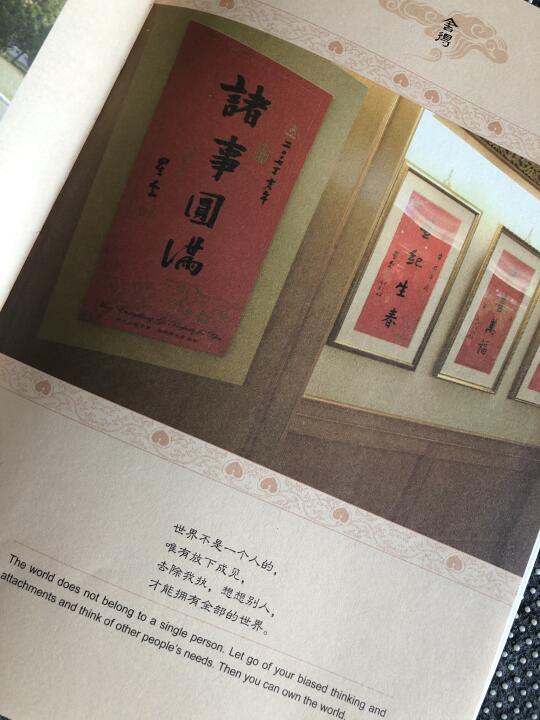 舍得
諸事圓滿
二〇〇七丁亥年
星雲
May Everything Be Perfect for You
紀生春
萬福
世界不是一个人的，
唯有放下成见，
去除我执，想想别人，
才能拥有全部的世界。
The world does not belong to a single person. Let go of your biased thinking and
attachments and think of other people's needs. Then you can own the world.